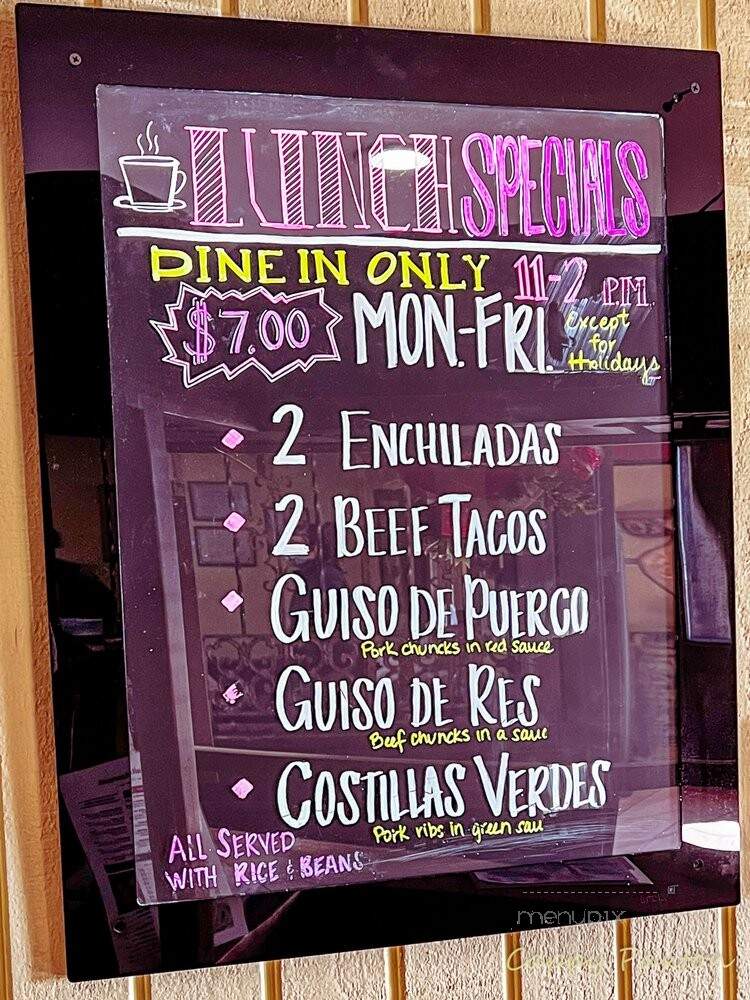 LUNCH SPECIALS
DINE IN ONLY 11-2 P.M.
$7.00 MON.-FRI. Except
for
Holidays
2 ENCHILADAS
2 BEEF TACOS
GUISO DE PUERCO
Pork chuncks in red sauce
GUISO DE RES
Beef chuncks in a sauce
COSTILLAS VERDES
Pork ribs in green sau
ALL SERVED
WITH RICE & BEANS
menupix